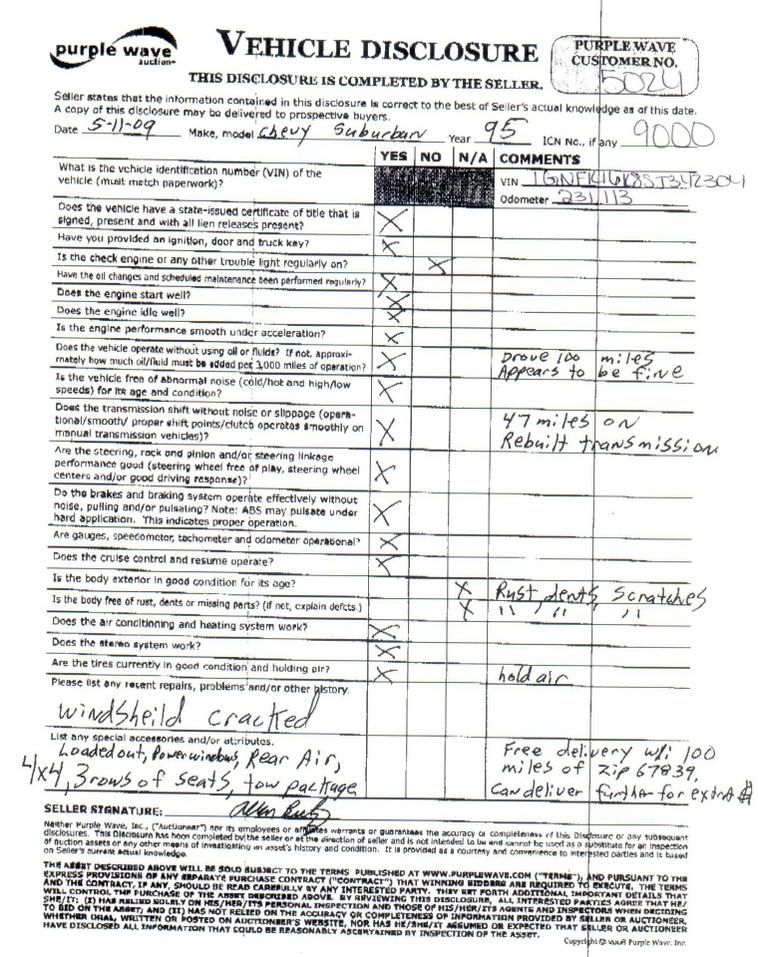 purple wave
auction™
VEHICLE DISCLOSURE
THIS DISCLOSURE IS COMPLETED BY THE SELLER.
PURPLE WAVE
CUSTOMER NO.
5024
Seller states that the information contained in this disclosure is correct to the best of Seller's actual knowledge as of this date.
A copy of this disclosure may be delivered to prospective buyers.
Date 5-11-09 Make, model Chevy Suburban Year 95 ICN No., if any 9000
YES NO N/A COMMENTS
What is the vehicle identification number (VIN) of the
vehicle (must match paperwork)?
VIN 1GNFK16K8SJ342304
Odometer 231,113
Does the vehicle have a state-issued certificate of title that is
signed, present and with all lien releases present? X
Have you provided an ignition, door and truck key? X
Is the check engine or any other trouble light regularly on? X
Have the oil changes and scheduled maintenance been performed regularly? X
Does the engine start well? X
Does the engine idle well? X
Is the engine performance smooth under acceleration? X
Does the vehicle operate without using oil or fluids? If not, approxi-
mately how much oil/fluid must be added per 3,000 miles of operation? X
Drove 100 miles
Appears to be fine
Is the vehicle free of abnormal noise (cold/hot and high/low
speeds) for its age and condition? X
Does the transmission shift without noise or slippage (opera-
tional/smooth/ proper shift points/clutch operates smoothly on
manual transmission vehicles)? X
47 miles on
Rebuilt transmission
Are the steering, rack and pinion and/or steering linkage
performance good (steering wheel free of play, steering wheel
centers and/or good driving response)? X
Do the brakes and braking system operate effectively without
noise, pulling and/or pulsating? Note: ABS may pulsate under
hard application. This indicates proper operation. X
Are gauges, speedometer, tachometer and odometer operational? X
Does the cruise control and resume operate? X
Is the body exterior in good condition for its age? X Rust dents, Scratches
Is the body free of rust, dents or missing parts? (if not, explain defcts.) X " , " "
Does the air conditioning and heating system work? X
Does the stereo system work? X
Are the tires currently in good condition and holding air? X hold air
Please list any recent repairs, problems and/or other history.
Windsheild cracked
List any special accessories and/or attributes.
Loaded out, Power windows, Rear Air,
4x4, 3 rows of seats, tow package
Free delivery w/i 100
miles of Zip 67839,
Can deliver further for extra $
SELLER SIGNATURE:
Neither Purple Wave, Inc., ("Auctioneer") nor its employees or affiliates warrants or guarantees the accuracy or completeness of this Disclosure or any subsequent
disclosures. This Disclosure has been completed by the seller or at the direction of seller and is not intended to be and cannot be used as a substitute for an inspection
of auction assets or any other means of investigating an asset's history and condition. It is provided as a courtesy and convenience to interested parties and is based
on Seller's current actual knowledge.
THE ASSET DESCRIBED ABOVE WILL BE SOLD SUBJECT TO THE TERMS PUBLISHED AT WWW.PURPLEWAVE.COM ("TERMS"), AND PURSUANT TO THE
EXPRESS PROVISIONS OF ANY SEPARATE PURCHASE CONTRACT ("CONTRACT") THAT WINNING BIDDERS ARE REQUIRED TO EXECUTE. THE TERMS
AND THE CONTRACT, IF ANY, SHOULD BE READ CAREFULLY BY ANY INTERESTED PARTY. THEY SET FORTH ADDITIONAL IMPORTANT DETAILS THAT
WILL CONTROL THE PURCHASE OF THE ASSET DESCRIBED ABOVE. BY REVIEWING THIS DISCLOSURE, ALL INTERESTED PARTIES AGREE THAT HE/
SHE/IT: (I) HAS RELIED SOLELY ON HIS/HER/ITS PERSONAL INSPECTION AND THOSE OF HIS/HER/ITS AGENTS AND INSPECTORS WHEN DECIDING
TO BID ON THE ASSET; AND (II) HAS NOT RELIED ON THE ACCURACY OR COMPLETENESS OF INFORMATION PROVIDED BY SELLER OR AUCTIONEER,
WHETHER ORAL, WRITTEN OR POSTED ON AUCTIONEER'S WEBSITE, NOR HAS HE/SHE/IT ASSUMED OR EXPECTED THAT SELLER OR AUCTIONEER
HAVE DISCLOSED ALL INFORMATION THAT COULD BE REASONABLY ASCERTAINED BY INSPECTION OF THE ASSET.
Copyright © 2008 Purple Wave, Inc.